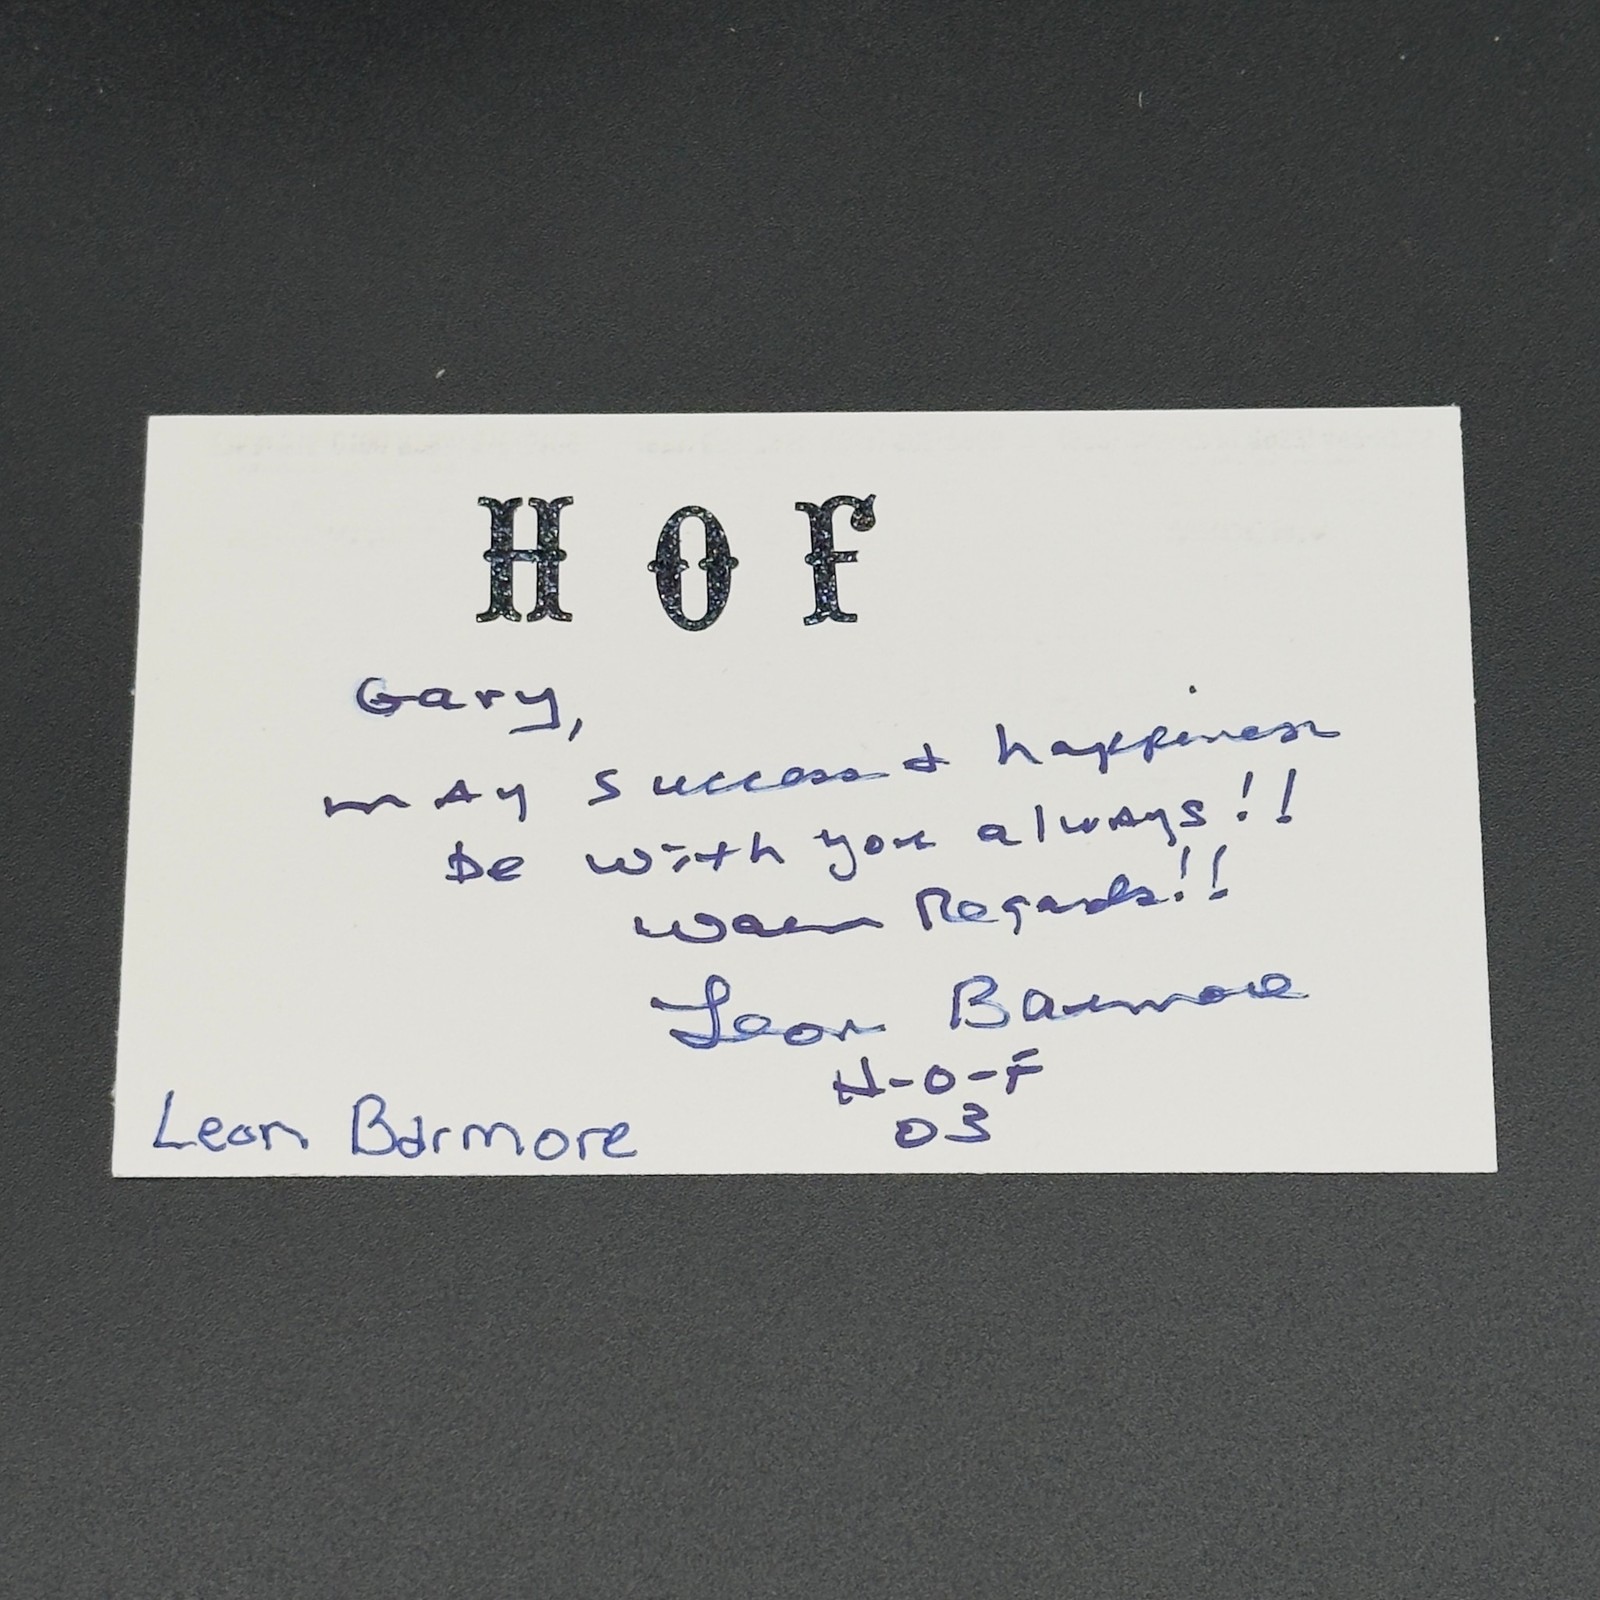 H O F
Gary,
may success + happiness
be with you always!!
warm Regards!!
Leon Barmore
H-O-F
03
Leon Barmore